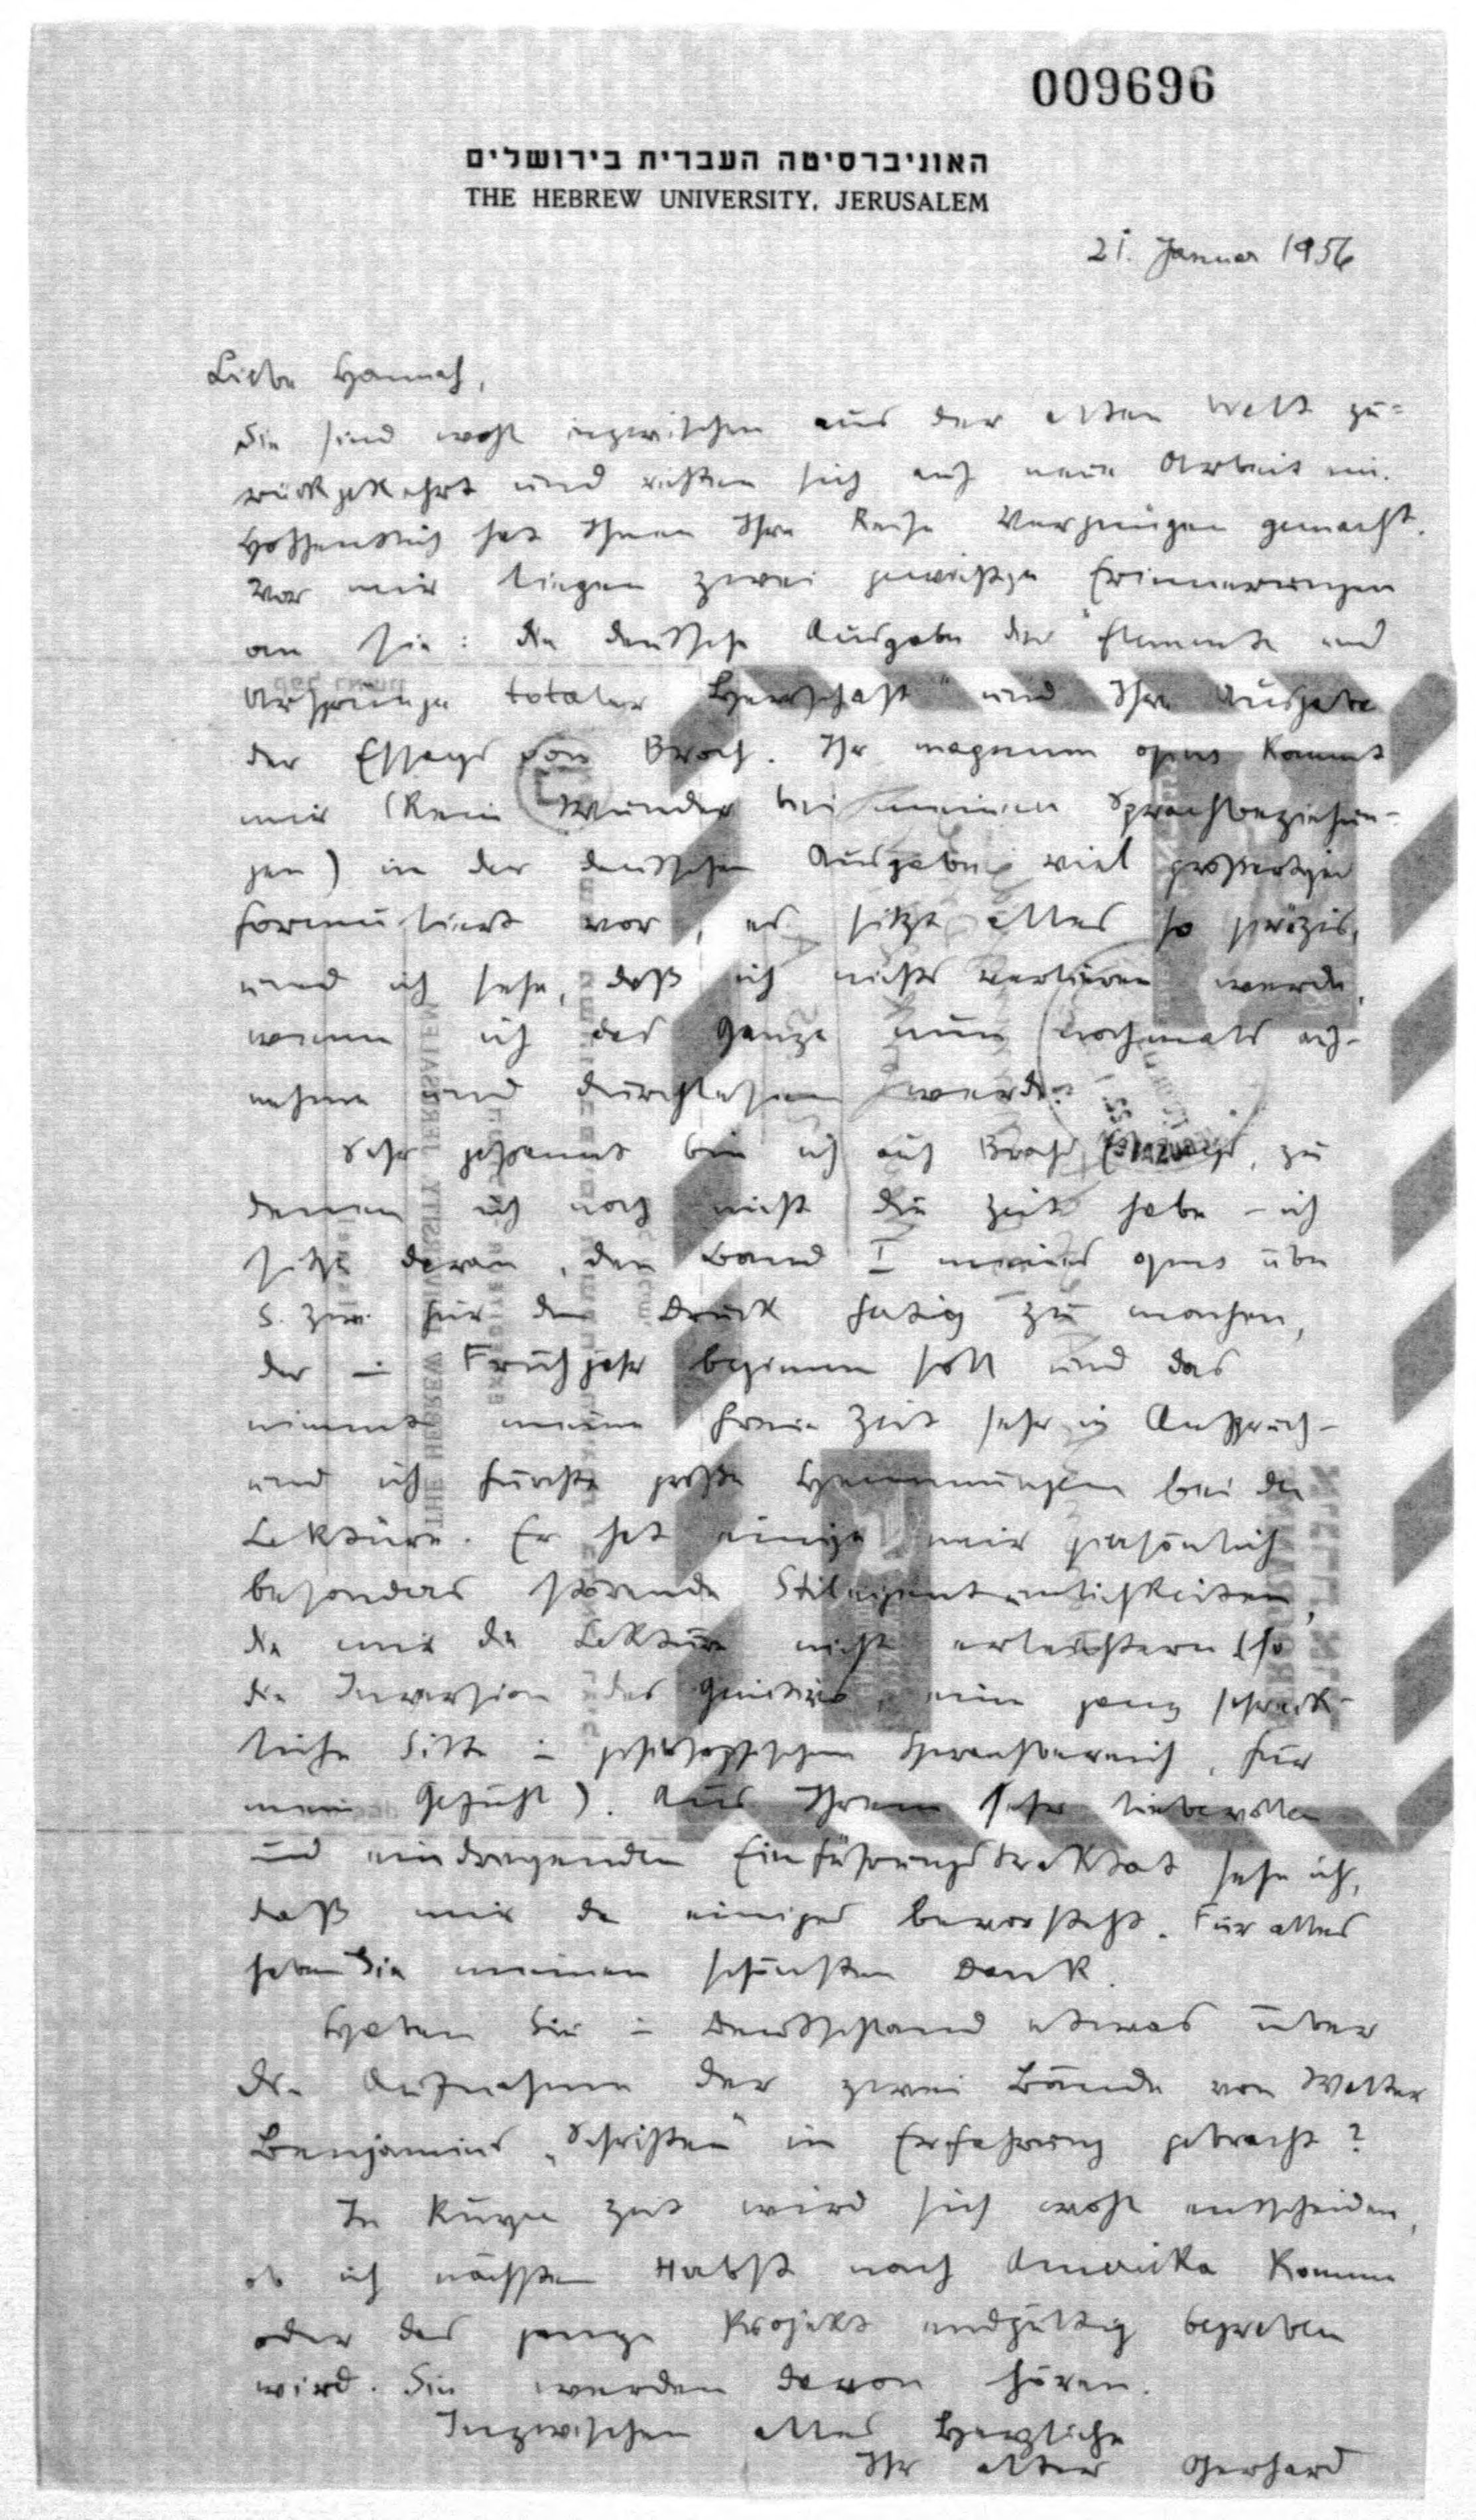 009696
האוניברסיטה העברית בירושלים
THE HEBREW UNIVERSITY, JERUSALEM
21. Januar 1956
Liebe Hannah,
Sie sind wohl inzwischen aus der alten Welt zu=
rückgekehrt und richten sich auf neue Arbeit ein.
Hoffentlich hat Ihnen Ihre Reise Vergnügen gemacht.
Vor mir liegen zwei gewichtige Erinnerungen
an Sie: die deutsche Ausgabe der "Elemente und
Ursprünge totaler Herrschaft" und Ihre Ausgabe
der Essays von Broch. Ihr magnum opus kommt
mir (kein Wunder bei meinen Sprachbeziehun-
gen) in der deutschen Ausgabe viel großartiger
formuliert vor, es sitzt alles so präzis,
und ich sehe, daß ich nichts verlieren werde,
wenn ich das Ganze nun nochmals auf-
nehme und durchlesen werde.
Sehr gespannt bin ich auf Brochs Essays, zu
denen ich noch nicht die Zeit habe – ich
sitze daran, den Band I meines opus über
S. Zwi für den Druck fertig zu machen,
der im Frühjahr beginnen soll und das
nimmt meine freie Zeit sehr in Anspruch –
und ich fürchte große Hemmungen bei der
Lektüre. Er hat einige mir persönlich
besonders störende Stileigentümlichkeiten,
die mir die Lektüre nicht erleichtern (so
die Inversion des Genitivs, eine ganz schreck-
liche Sitte im philosophischen Sprachbereich, für
mein Gefühl). Aus Ihrem sehr liebevollen
und eindringenden Einführungstraktat sehe ich,
daß mir da einiges bevorsteht. Für alles
haben Sie meinen schönsten Dank.
Haben Sie in Deutschland etwas über
die Aufnahme der zwei Bände von Walter
Benjamins „Schriften" in Erfahrung gebracht?
In kurzer Zeit wird sich wohl entscheiden,
ob ich nächsten Herbst nach Amerika komme
oder das ganze Projekt endgültig begraben
wird. Sie werden davon hören.
Inzwischen alles Herzliche
Ihr alter Gerhard